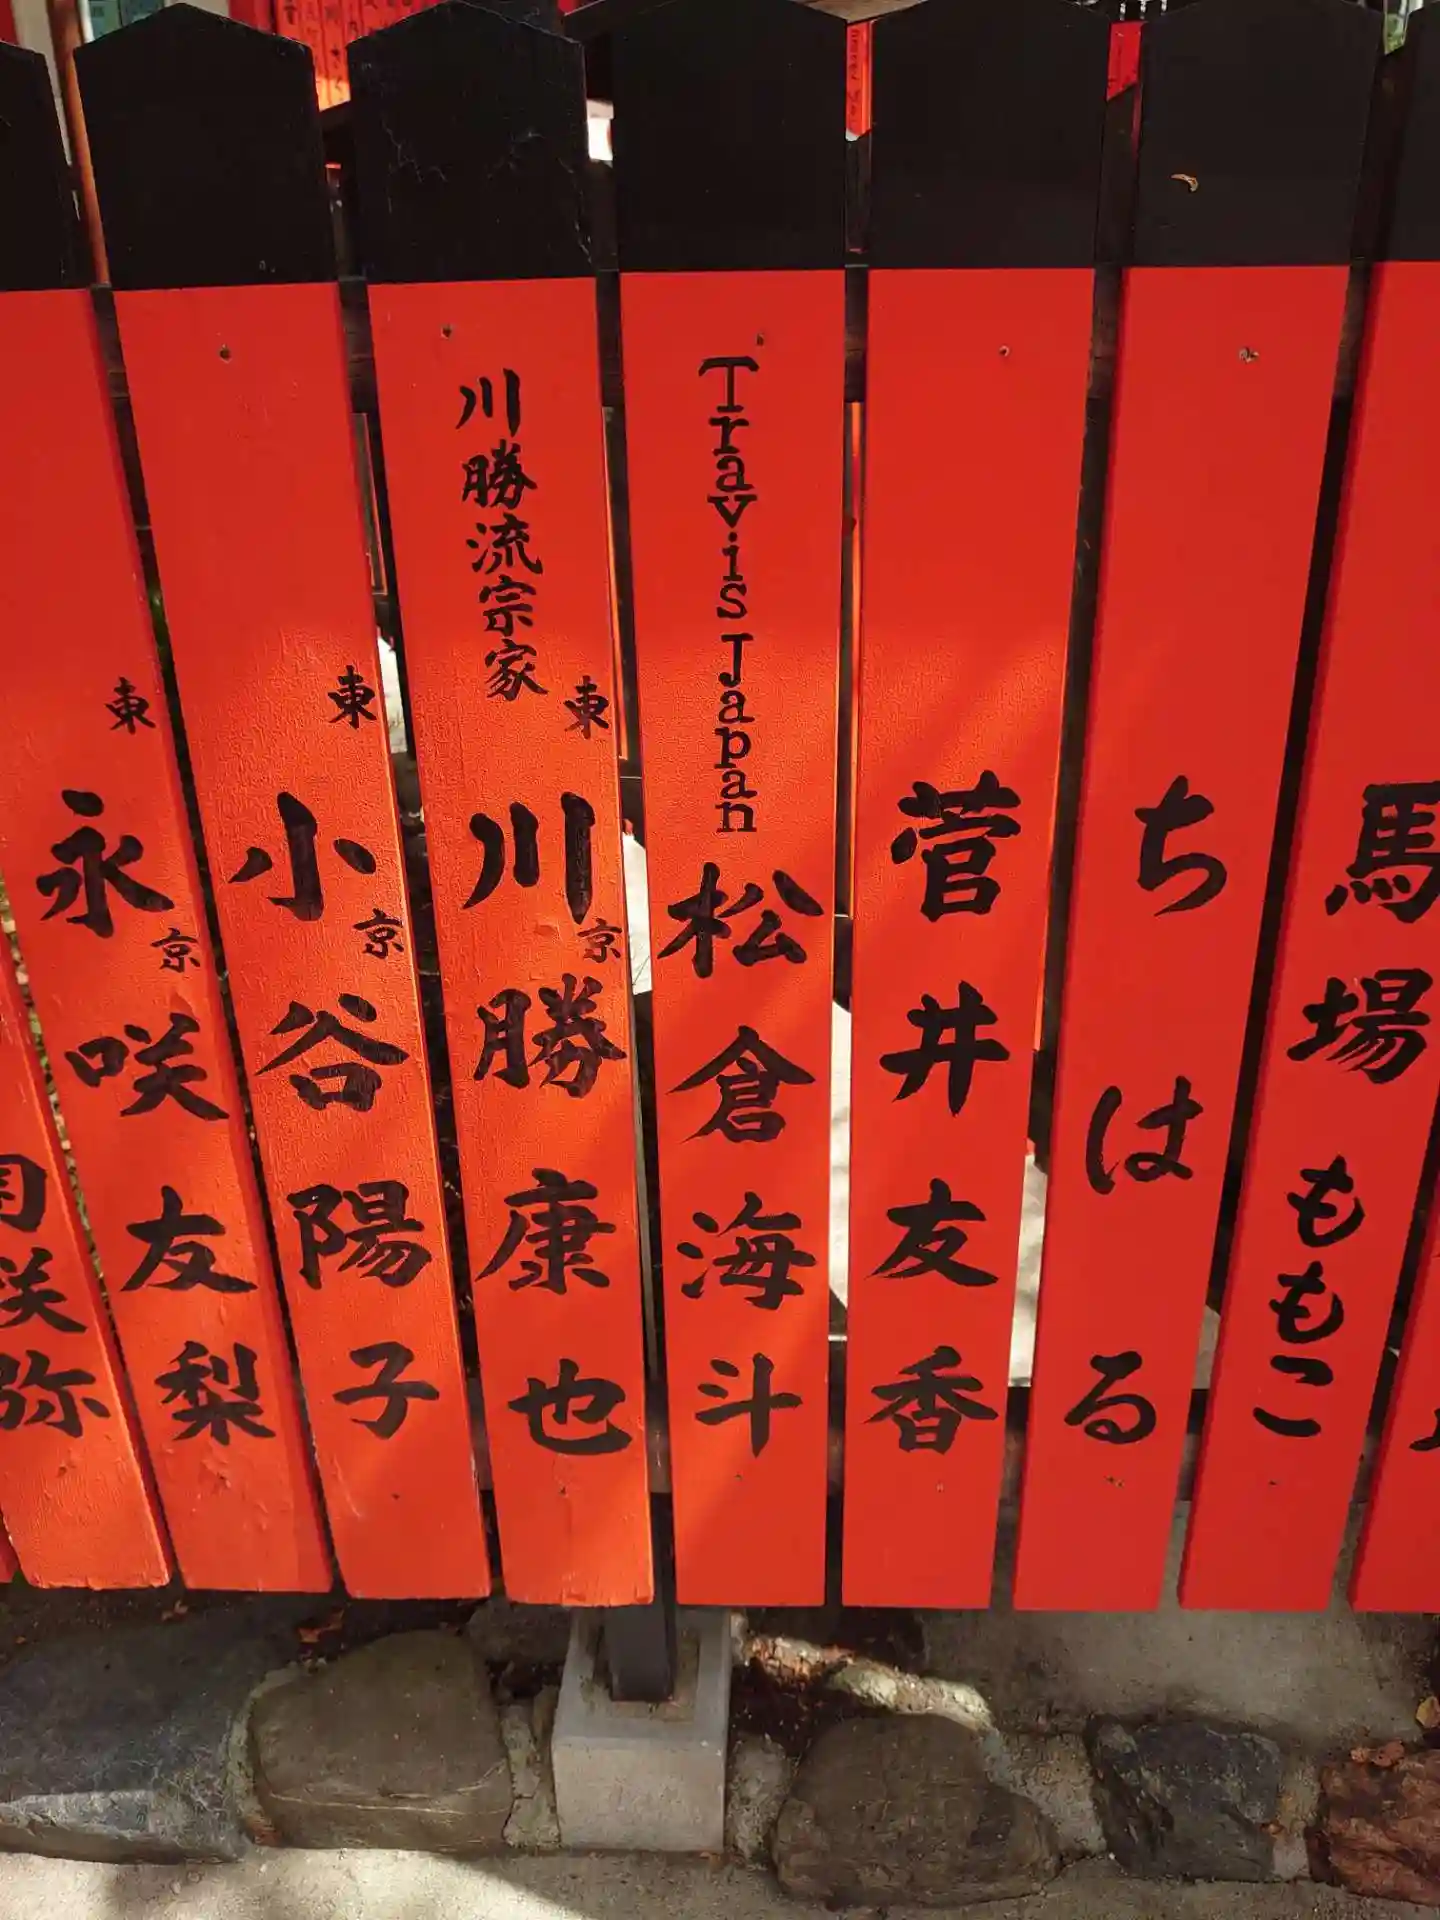 馬場ももこ
ちはる
菅井友香
Travis Japan
松倉海斗
川勝流宗家
東京
川勝康也
東京
小谷陽子
東京
永咲友梨
咲弥